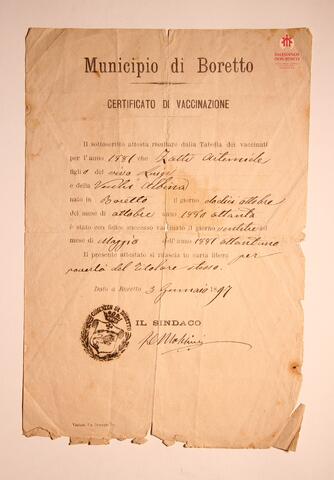 SALESIANOS
DON BOSCO
Municipio di Boretto
CERTIFICATO DI VACCINAZIONE
Il sottoscritto attesta risultare dalla Tabella dei vaccinati
per l'anno 1881 che Zatti Artemide
figlio del vivo Luigi
e della Vecchi Albina
nato in Boretto il giorno dodici ottobre
del mese di ottobre anno 1880 ottanta
è stato con felice successo vaccinato il giorno
mese di Maggio dell'anno 1881 ottantuno
Il presente attestato si rilascia in carta libera per
povertà del titolare stesso.
Dato a Boretto 3 Gennaio 1897
IL SINDACO